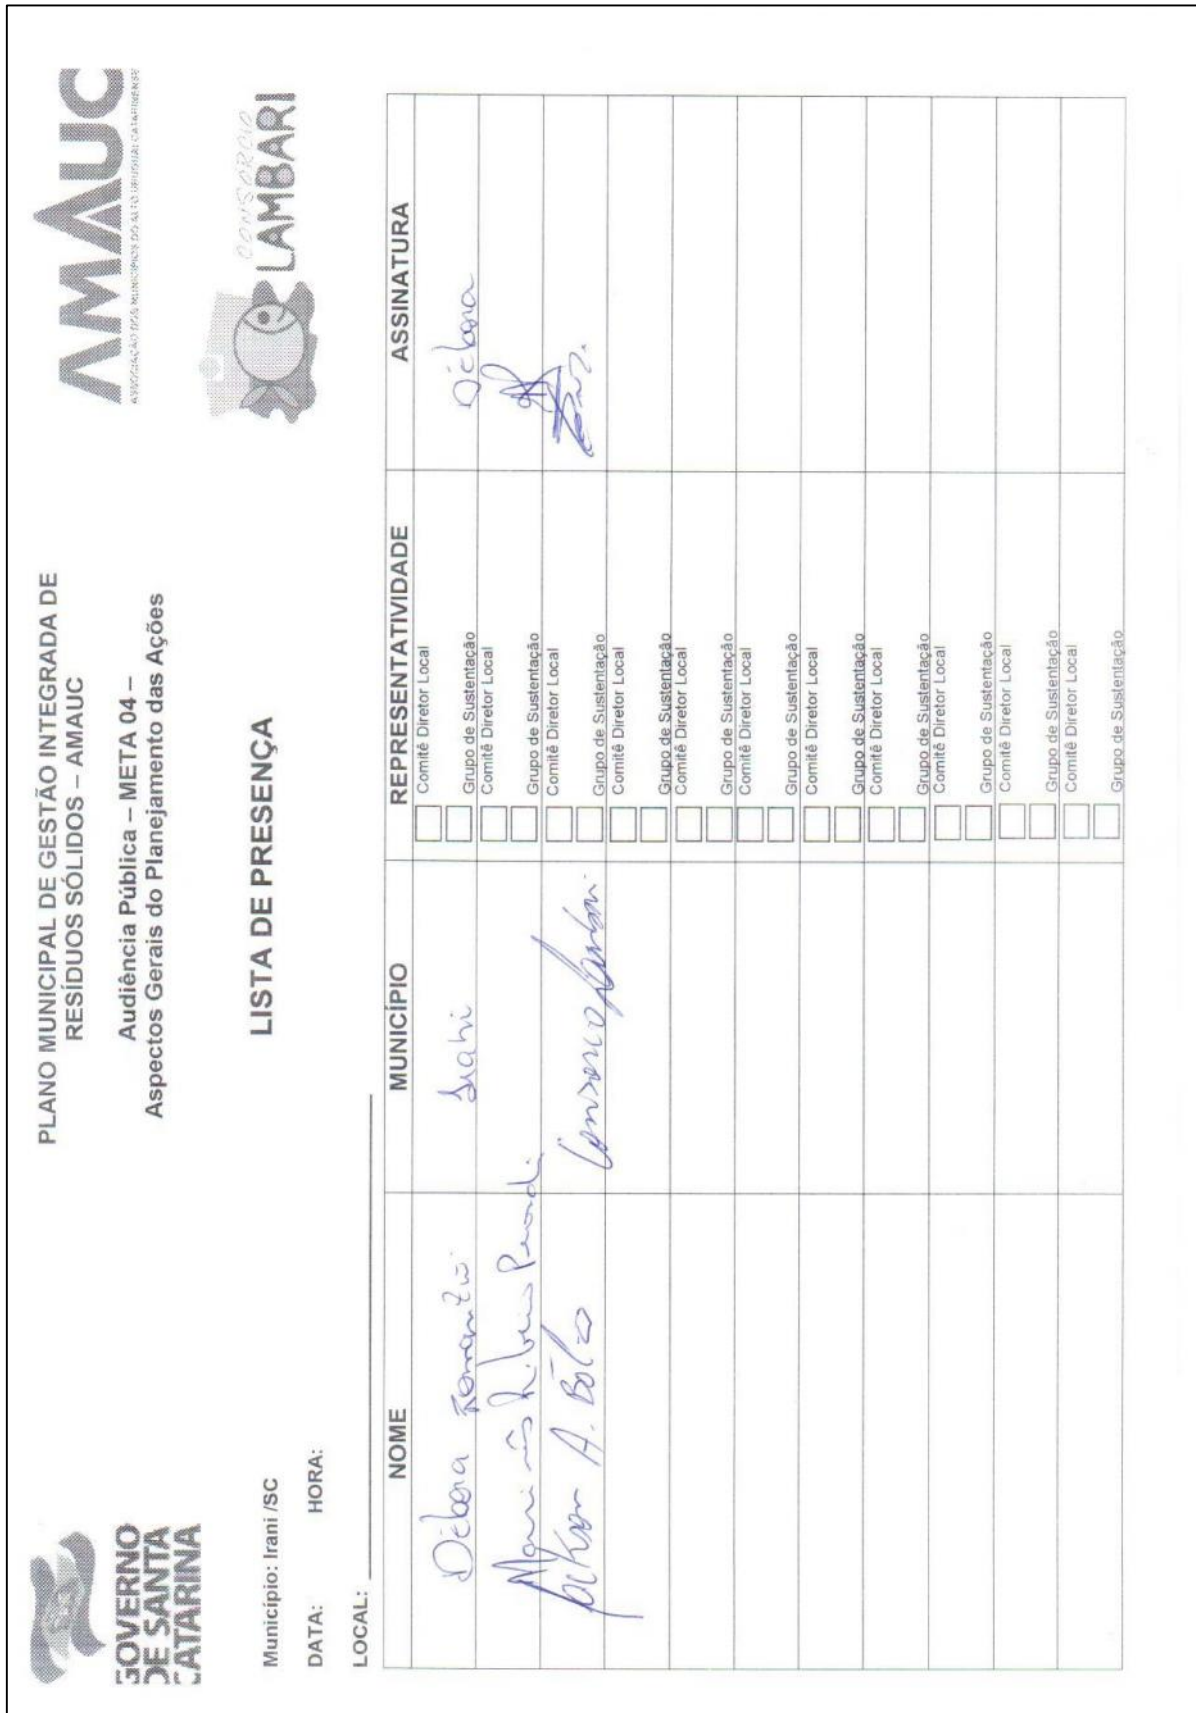 GOVERNO
DE SANTA
CATARINA
PLANO MUNICIPAL DE GESTÃO INTEGRADA DE
RESÍDUOS SÓLIDOS – AMAUC
Audiência Pública – META 04 –
Aspectos Gerais do Planejamento das Ações
AMAUC
ASSOCIAÇÃO DOS MUNICÍPIOS DO ALTO URUGUAI CATARINENSE
CONSÓRCIO
LAMBARI
LISTA DE PRESENÇA
Município: Irani /SC
DATA: HORA:
LOCAL:
NOME MUNICÍPIO REPRESENTATIVIDADE ASSINATURA
Comitê Diretor Local
Débora Irani Grupo de Sustentação Débora
Comitê Diretor Local
Grupo de Sustentação
Comitê Diretor Local
A. Grupo de Sustentação
Comitê Diretor Local
Grupo de Sustentação
Comitê Diretor Local
Grupo de Sustentação
Comitê Diretor Local
Grupo de Sustentação
Comitê Diretor Local
Grupo de Sustentação
Comitê Diretor Local
Grupo de Sustentação
Comitê Diretor Local
Grupo de Sustentação
Comitê Diretor Local
Grupo de Sustentação
Comitê Diretor Local
Grupo de Sustentação